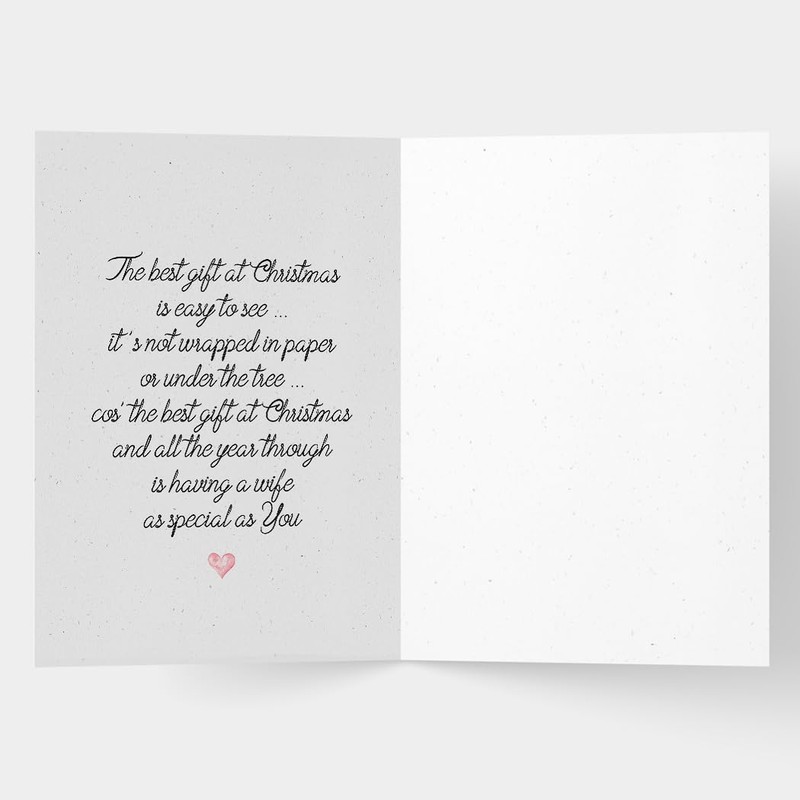 The best gift at Christmas
is easy to see ...
it's not wrapped in paper
or under the tree ...
cos' the best gift at Christmas
and all the year through
is having a wife
as special as You